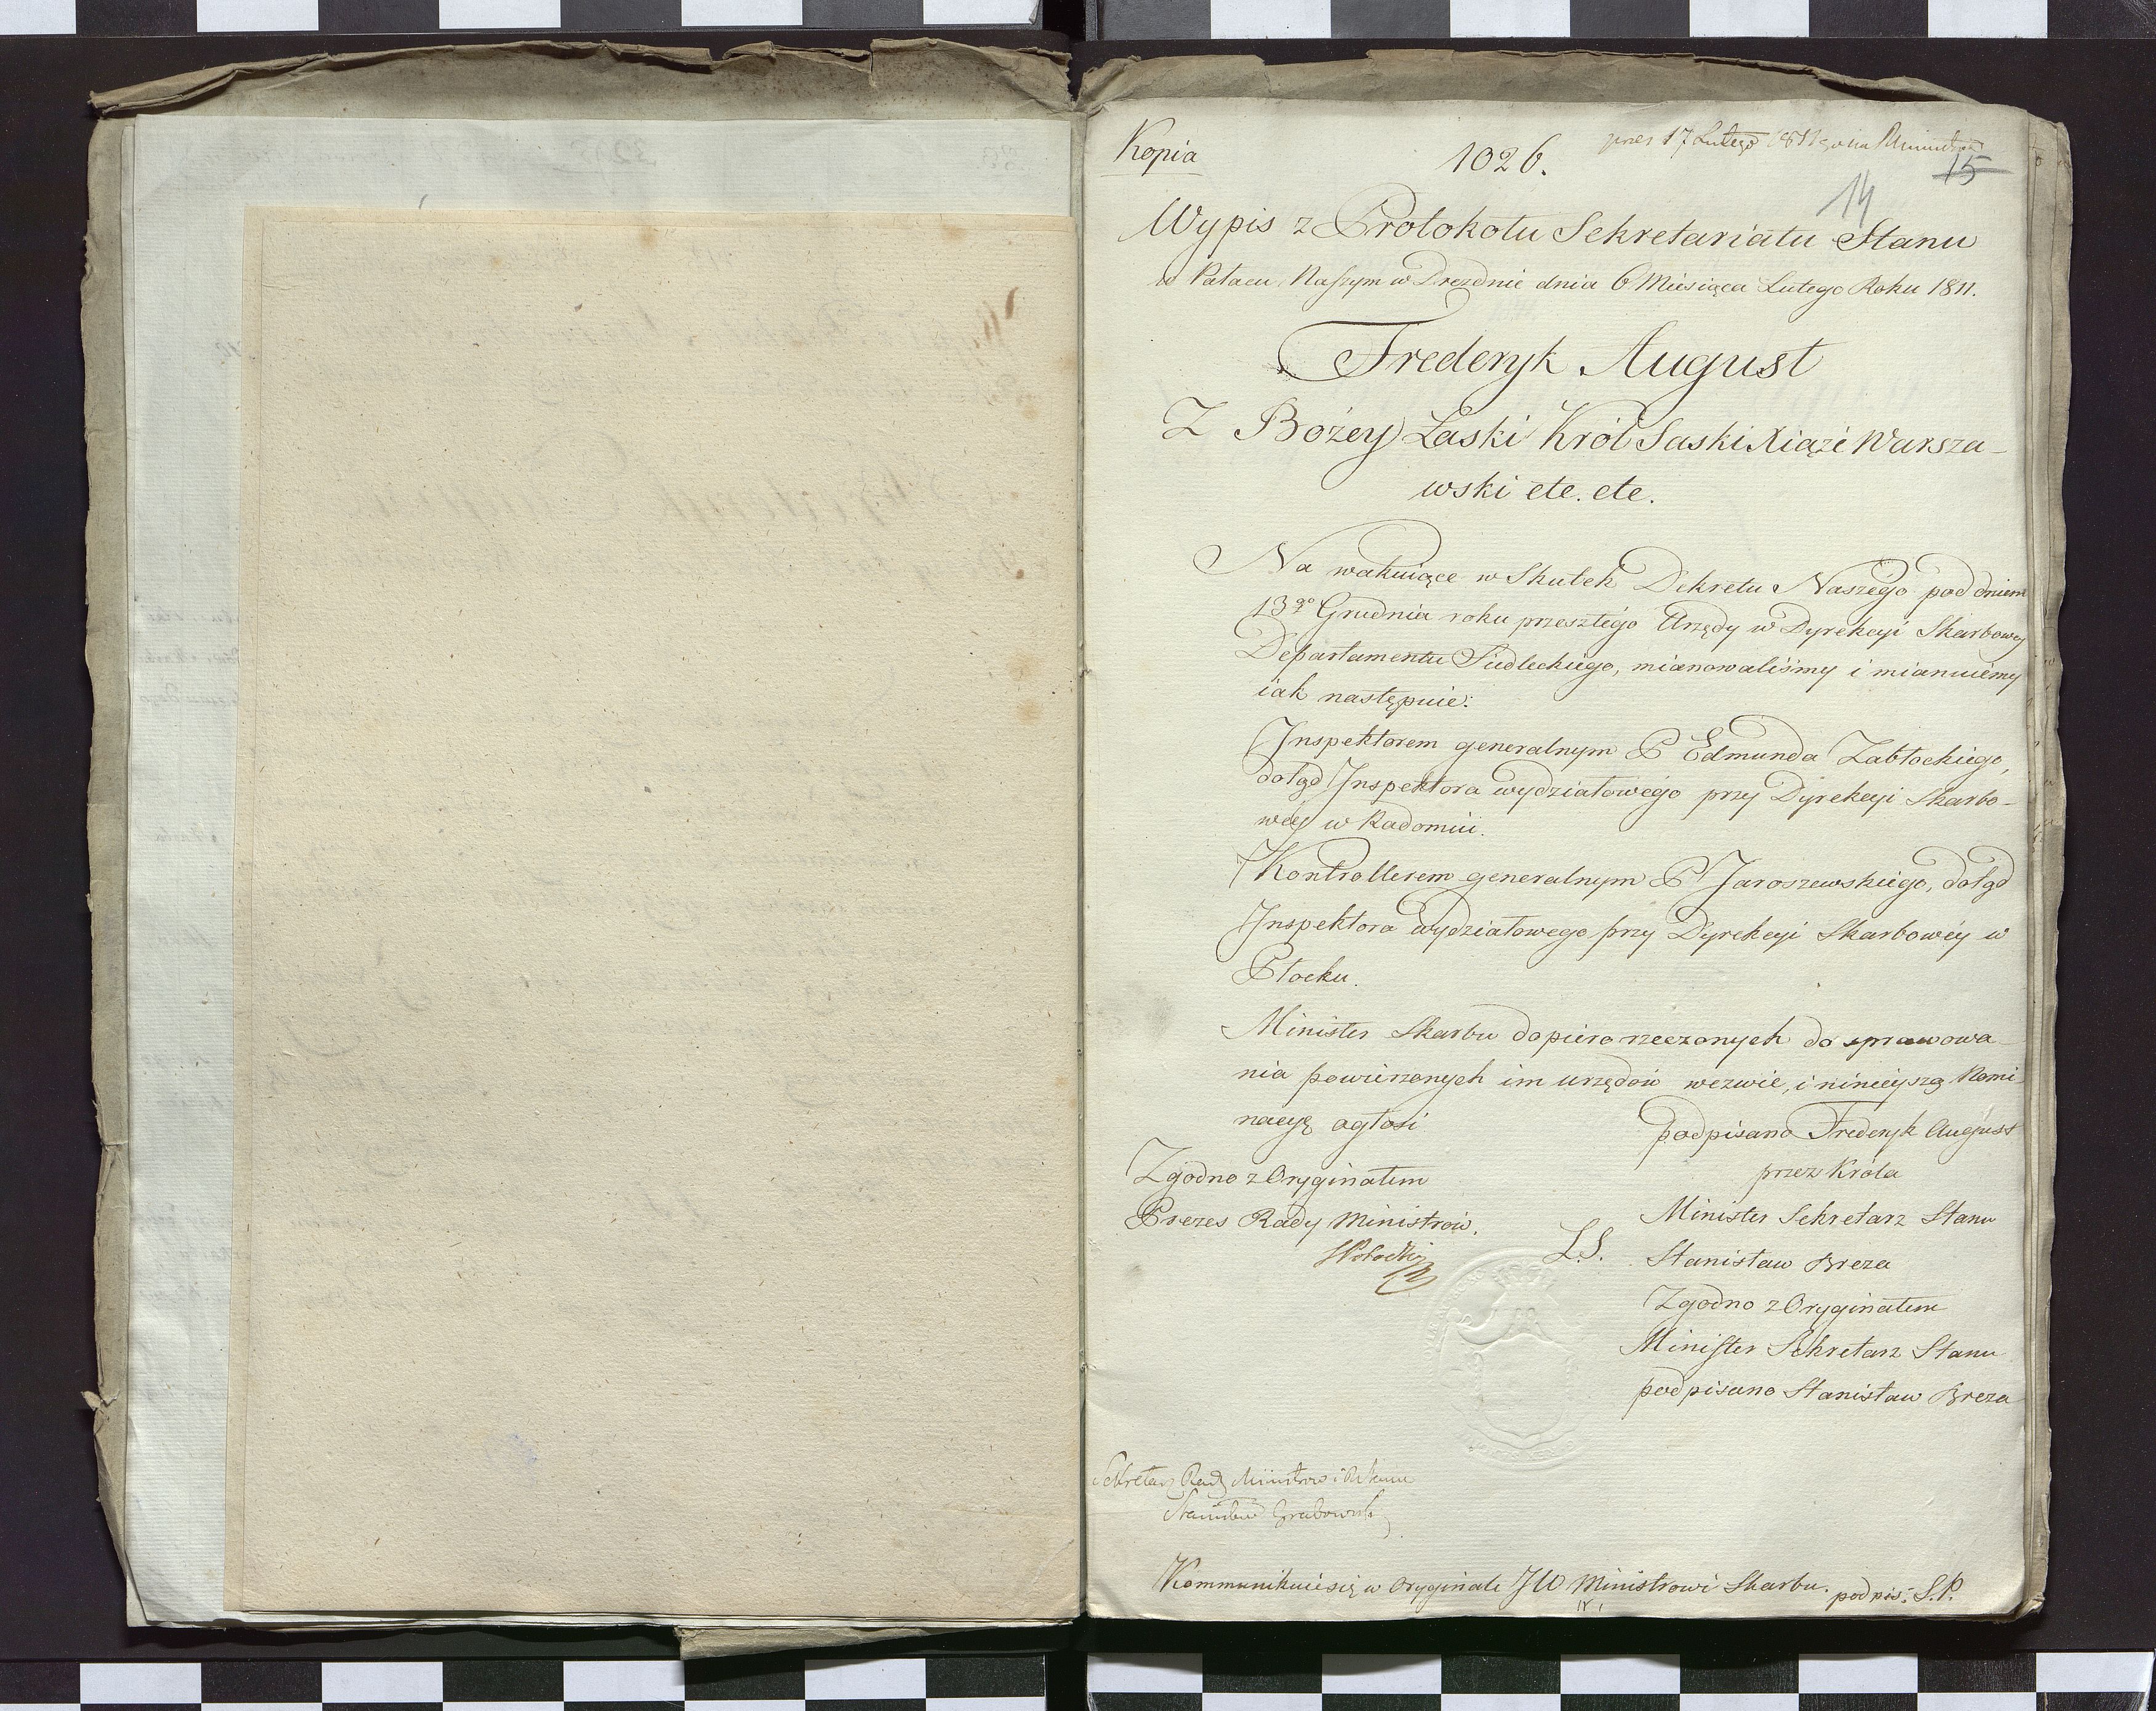 Kopia
1026.
pres 17 Lutego 1811
15
14
Wypis z Protokołu Sekretariatu Stanu
w Pałacu Naszym w Dreznie dnia 6 Miesiąca Lutego Roku 1811.
Frederyk August
Z Bożey Łaski Król Saski Xiąże Warsza-
wski etc. etc.
Na wakuiące w Skutek Dekretu Naszego pod dniem
13go Grudnia roku przeszłego Urzędy w Dyrekcyi Skarbowey
Departamentu Siedleckiego, mianowaliśmy i mianuiemy
iak następuie:
Inspektorem generalnym P Edmunda Zabłockiego,
dotąd Inspektora wydziałowego przy Dyrekcyi Skarbo-
wéy w Radomiu.
Kontrollerem generalnym P Jaroszewskiego, dotąd
Inspektora wydziałowego przy Dyrekcyi Skarbowéy w
Płocku.
Minister Skarbu dopiero rzeczonych do sprawowa-
nia powierzonych im urzędów wezwie, i ninieyszą Nomi-
nacyę ogłosi
podpisano Frederyk August
przez Króla
Minister Sekretarz Stanu
L.S. Stanisław Breza
Zgodno z Oryginałem
Minister Sekretarz Stanu
podpisano Stanisław Breza
Zgodno z Oryginałem
Prezes Rady Ministrów.
SPotocki
Sekretarz Rady Ministrow i Stanu
Stanisław Grabowski
Kommunikuie się w Oryginale JW Ministrowi Skarbu. podpis: S.P.